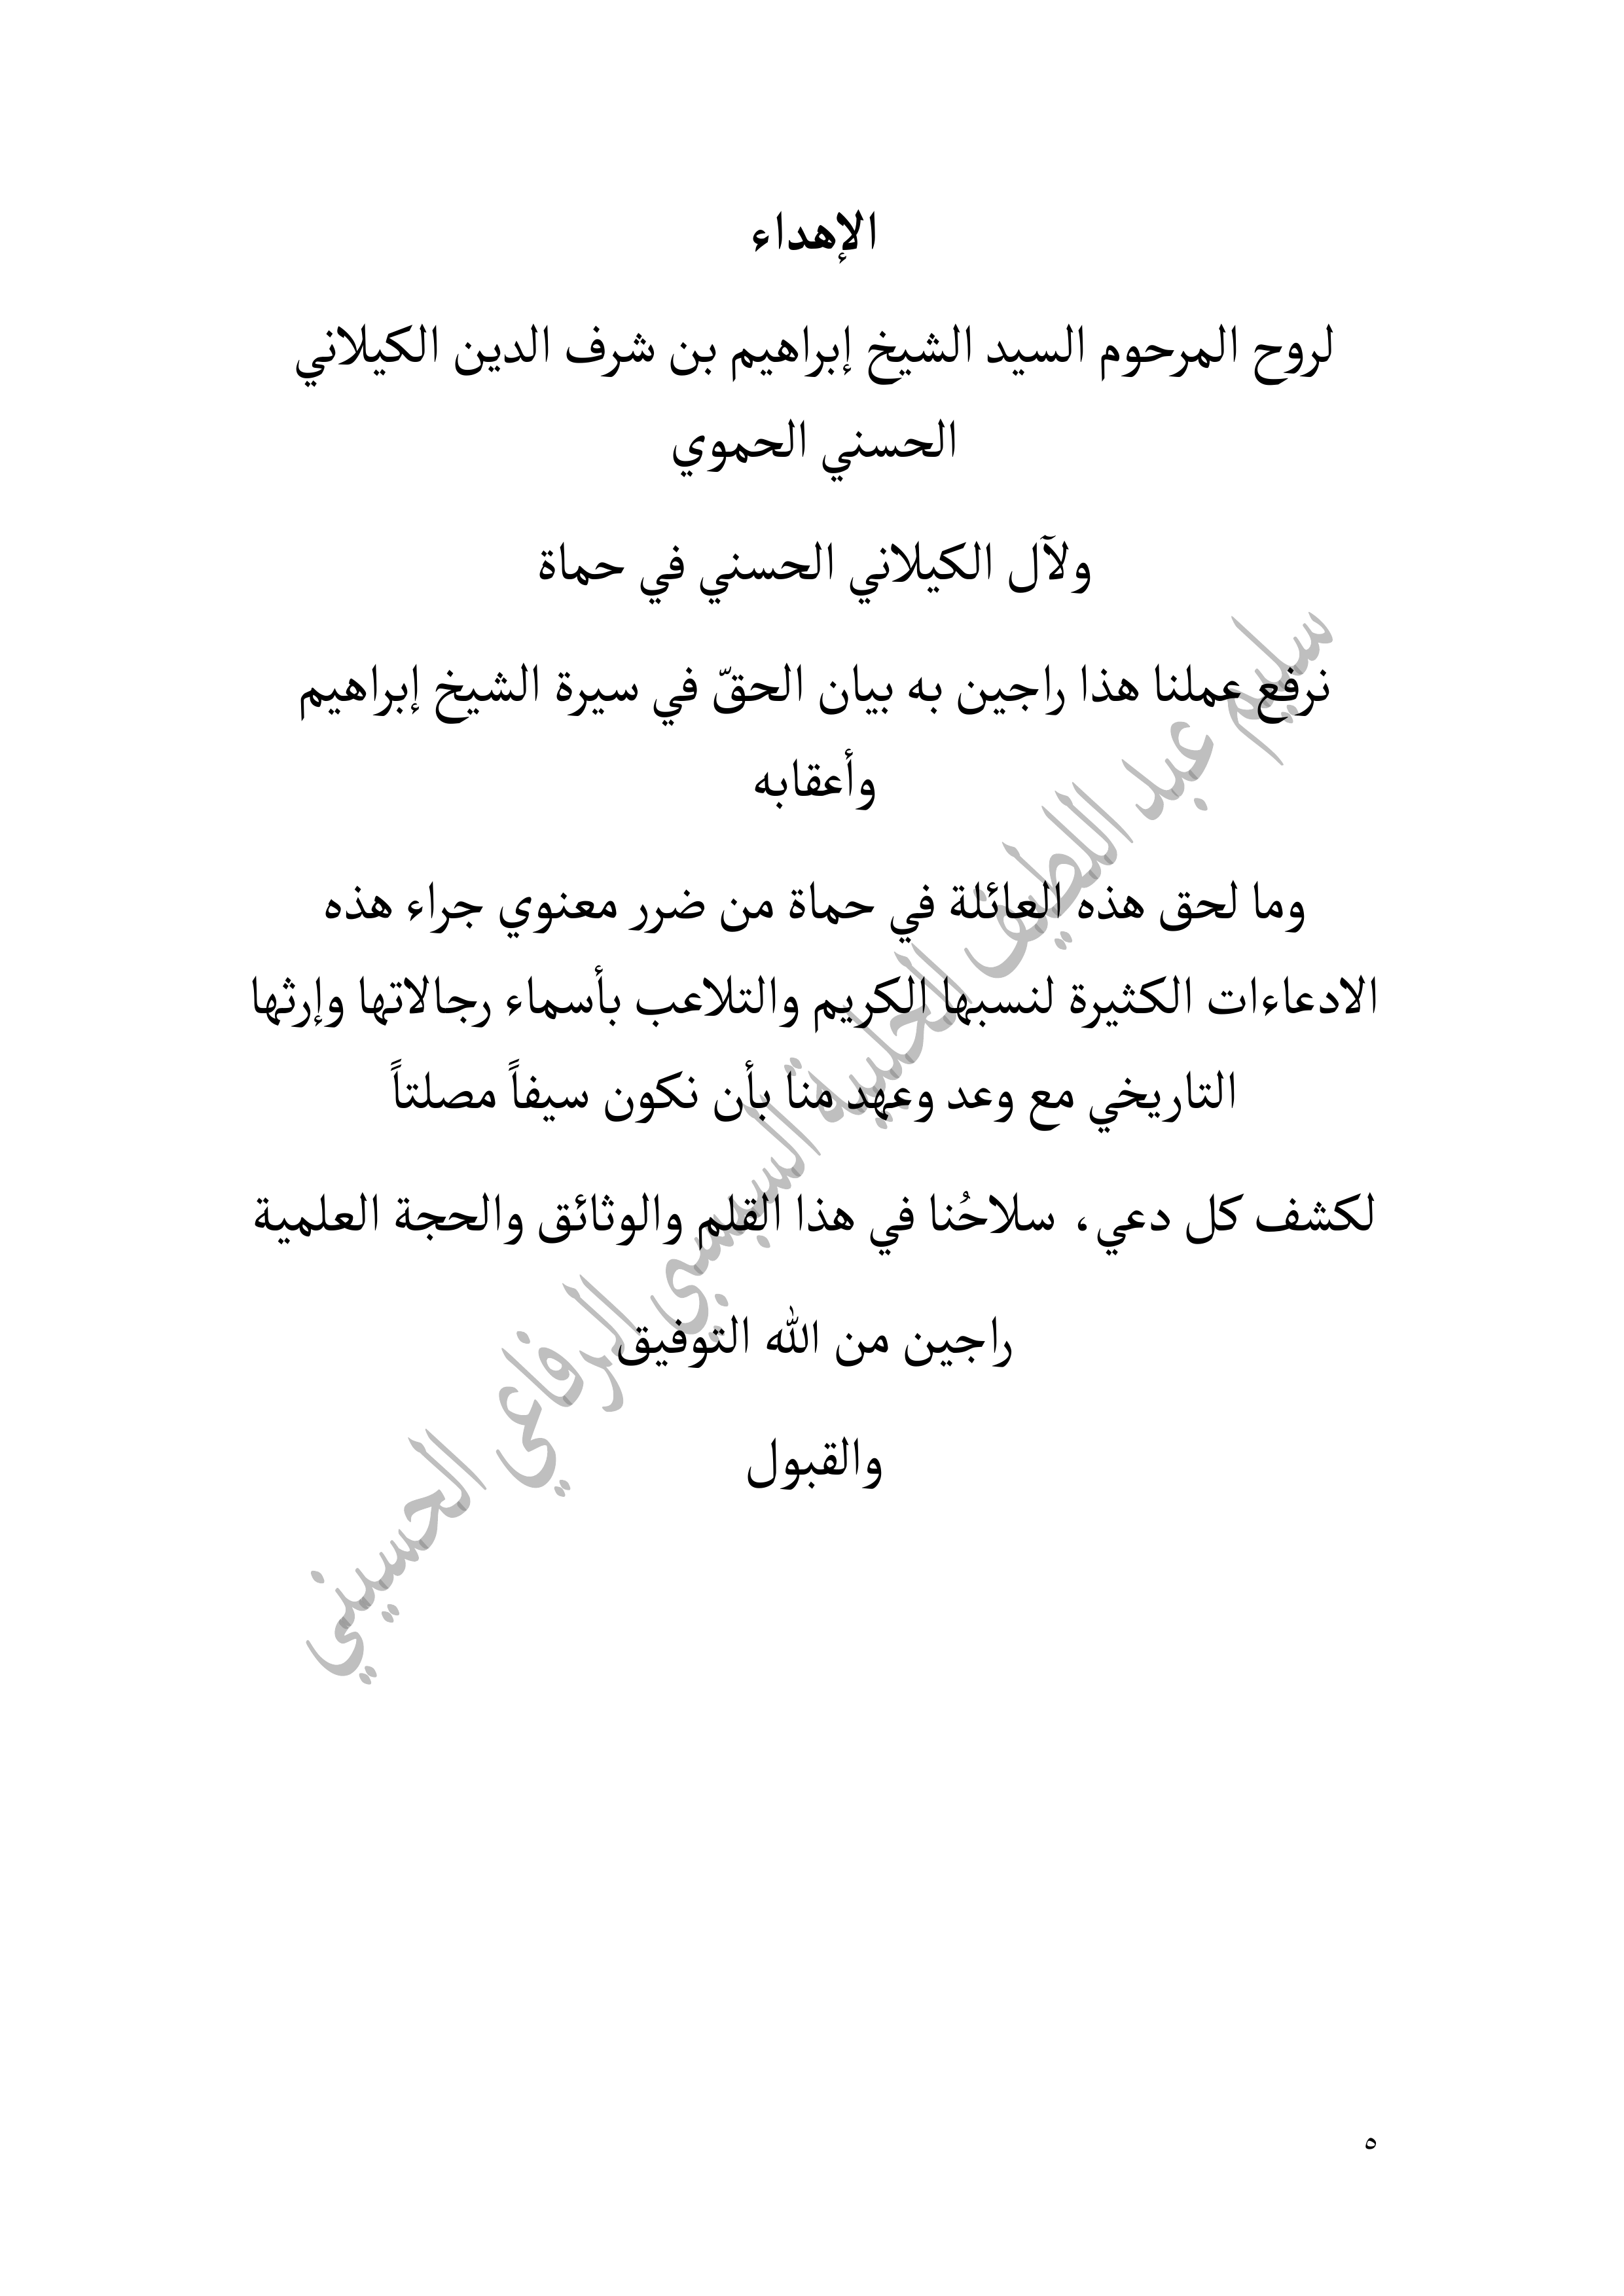 الإهداء
لروح المرحوم السيد الشيخ إبراهيم بن شرف الدين الكيلاني
الحسني الحموي
ولآل الكيلاني الحسني في حماة
نرفع عملنا هذا راجين به بيان الحقّ في سيرة الشيخ إبراهيم
وأعقابه
وما لحق هذه العائلة في حماة من ضرر معنوي جراء هذه
الادعاءات الكثيرة لنسبها الكريم والتلاعب بأسماء رجالاتها وإرثها
التاريخي مع وعد وعهد منا بأن نكون سيفاً مصلتاً
لكشف كل دعي، سلاحُنا في هذا القلم والوثائق والحجة العلمية
راجين من الله التوفيق
والقبول
سليم عبد اللطيف الحلبية السبسبي الرفاعي الحسيني
٥